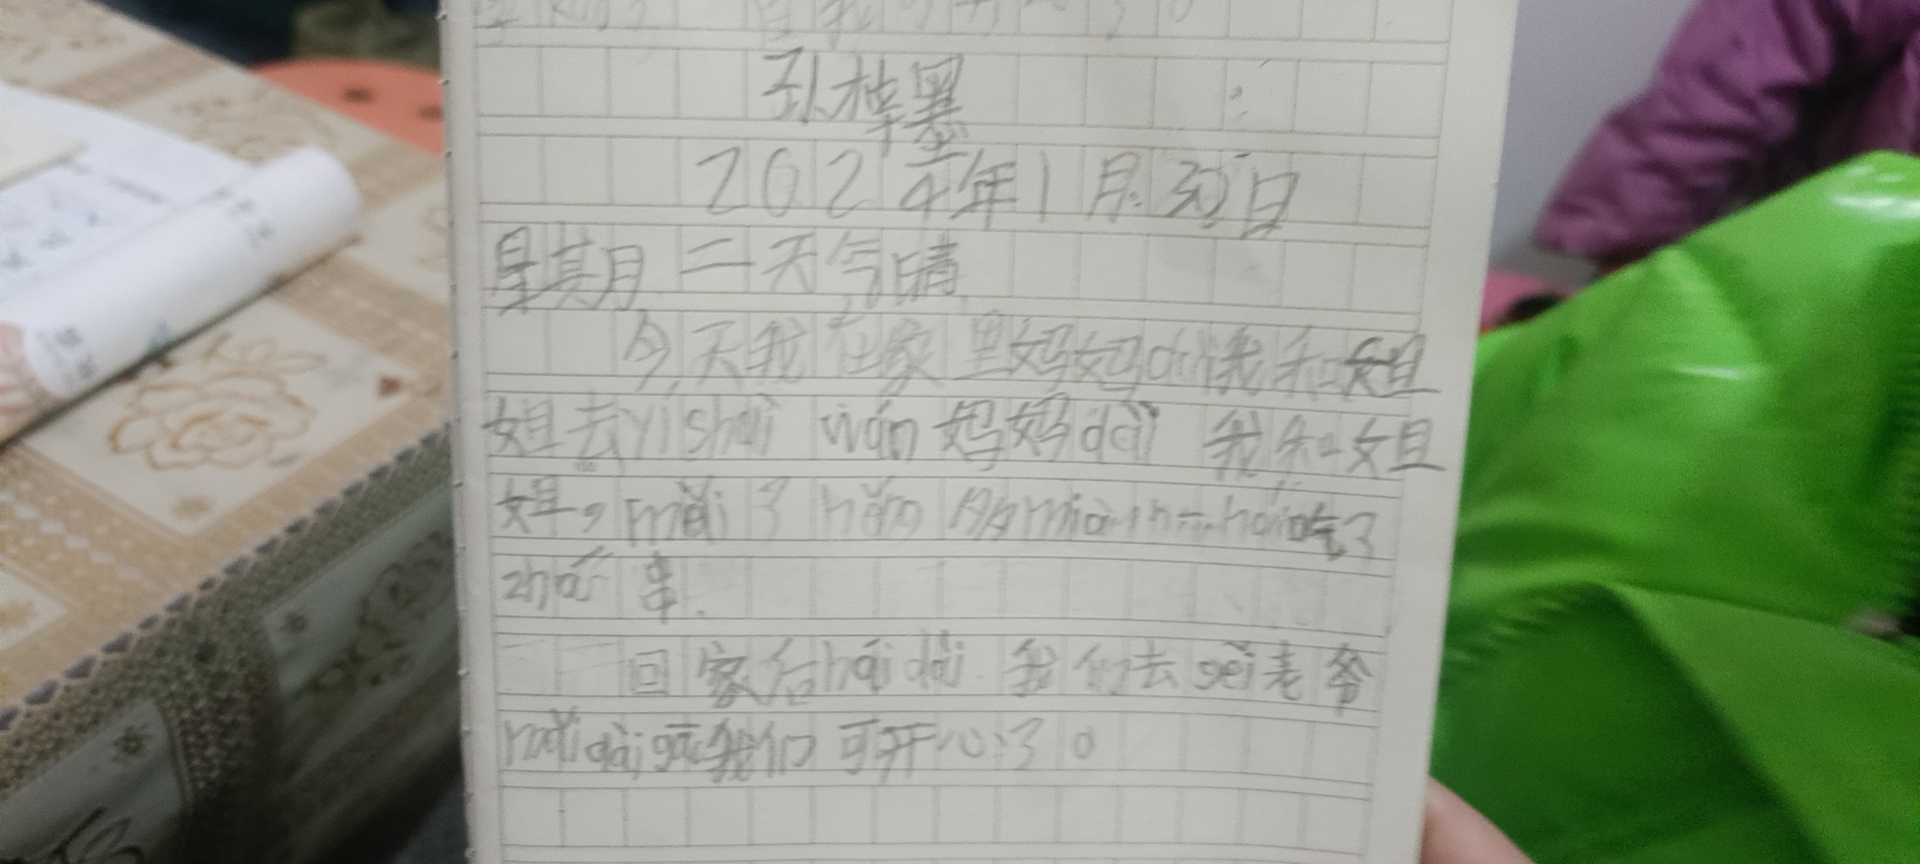 孙梓墨
2024年1月30日
星期二天气晴
今天我在家里妈妈dài我和姐
姐去yí shuì wán妈妈dài我和姐
姐,mǎi了hěn多miàn hái吃了
zhá串.
回家后hái dài我们去gěi老爷
mǎi dàn gāo我们可开心了。